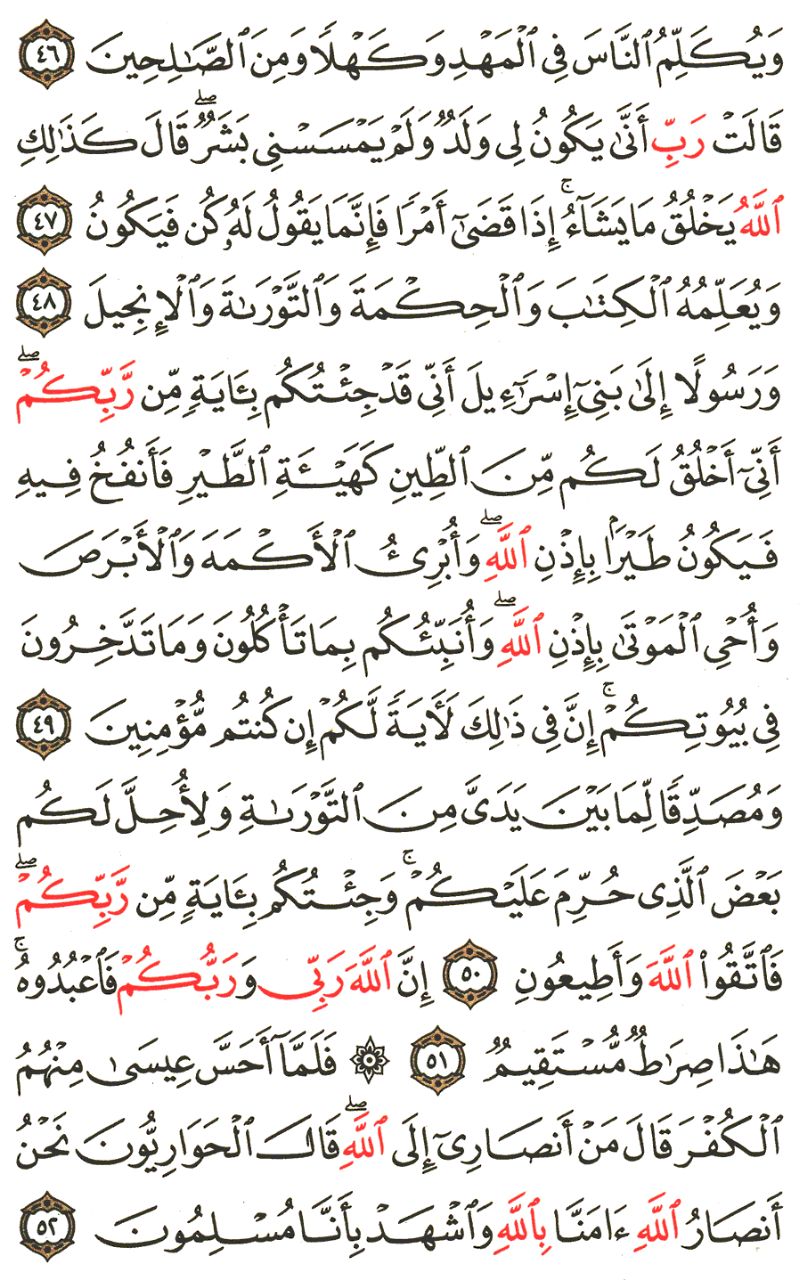 وَيُكَلِّمُ ٱلنَّاسَ فِى ٱلْمَهْدِ وَكَهْلًا وَمِنَ ٱلصَّٰلِحِينَ ٤٦
قَالَتْ رَبِّ أَنَّىٰ يَكُونُ لِى وَلَدٌ وَلَمْ يَمْسَسْنِى بَشَرٌ ۖ قَالَ كَذَٰلِكِ
ٱللَّهُ يَخْلُقُ مَا يَشَآءُ ۚ إِذَا قَضَىٰٓ أَمْرًا فَإِنَّمَا يَقُولُ لَهُۥ كُن فَيَكُونُ ٤٧
وَيُعَلِّمُهُ ٱلْكِتَٰبَ وَٱلْحِكْمَةَ وَٱلتَّوْرَىٰةَ وَٱلْإِنجِيلَ ٤٨
وَرَسُولًا إِلَىٰ بَنِىٓ إِسْرَٰٓءِيلَ أَنِّى قَدْ جِئْتُكُم بِـَٔايَةٍ مِّن رَّبِّكُمْ ۖ
أَنِّىٓ أَخْلُقُ لَكُم مِّنَ ٱلطِّينِ كَهَيْـَٔةِ ٱلطَّيْرِ فَأَنفُخُ فِيهِ
فَيَكُونُ طَيْرًۢا بِإِذْنِ ٱللَّهِ ۖ وَأُبْرِئُ ٱلْأَكْمَهَ وَٱلْأَبْرَصَ
وَأُحْىِ ٱلْمَوْتَىٰ بِإِذْنِ ٱللَّهِ ۖ وَأُنَبِّئُكُم بِمَا تَأْكُلُونَ وَمَا تَدَّخِرُونَ
فِى بُيُوتِكُمْ ۚ إِنَّ فِى ذَٰلِكَ لَـَٔايَةً لَّكُمْ إِن كُنتُم مُّؤْمِنِينَ ٤٩
وَمُصَدِّقًا لِّمَا بَيْنَ يَدَىَّ مِنَ ٱلتَّوْرَىٰةِ وَلِأُحِلَّ لَكُم
بَعْضَ ٱلَّذِى حُرِّمَ عَلَيْكُمْ ۚ وَجِئْتُكُم بِـَٔايَةٍ مِّن رَّبِّكُمْ ۖ
فَٱتَّقُوا۟ ٱللَّهَ وَأَطِيعُونِ ٥٠ إِنَّ ٱللَّهَ رَبِّى وَرَبُّكُمْ فَٱعْبُدُوهُ ۚ
هَٰذَا صِرَٰطٌ مُّسْتَقِيمٌ ٥١ ۞ فَلَمَّآ أَحَسَّ عِيسَىٰ مِنْهُمُ
ٱلْكُفْرَ قَالَ مَنْ أَنصَارِىٓ إِلَى ٱللَّهِ ۖ قَالَ ٱلْحَوَارِيُّونَ نَحْنُ
أَنصَارُ ٱللَّهِ ءَامَنَّا بِٱللَّهِ وَٱشْهَدْ بِأَنَّا مُسْلِمُونَ ٥٢